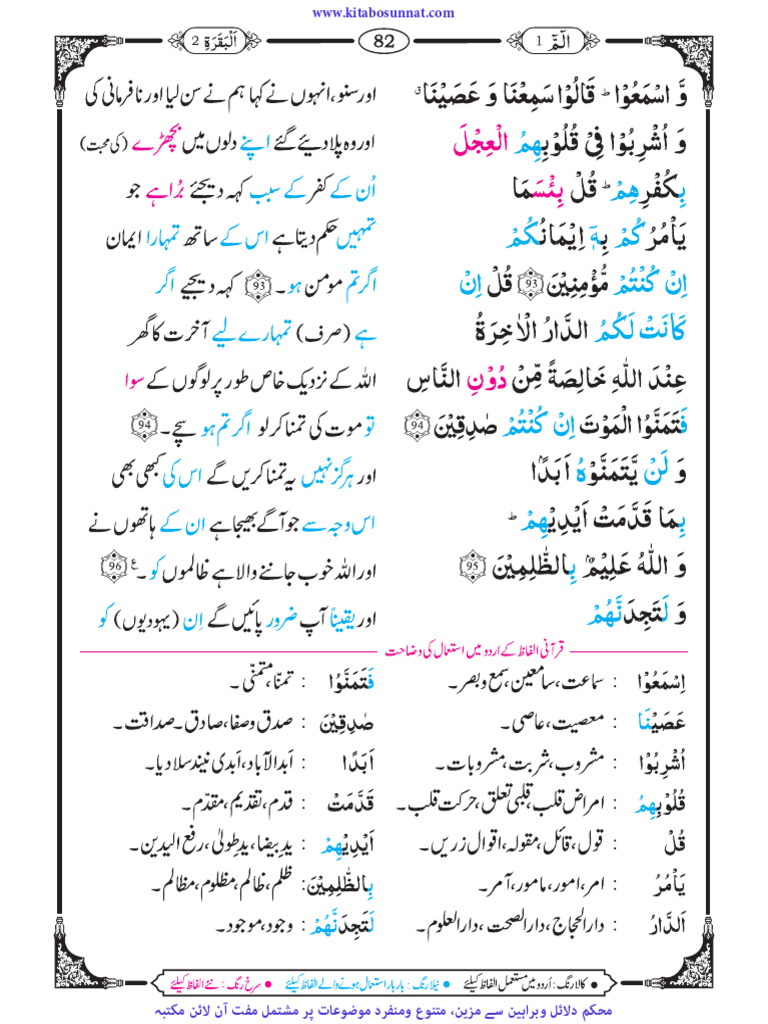 www.kitabosunnat.com
الٓمّٓ 1
82
اَلْبَقَرَةِ 2
وَّ اسْمَعُوْا ؕ قَالُوْا سَمِعْنَا وَ عَصَيْنَا ۗ
اور سنو، انہوں نے کہا ہم نے سن لیا اور نافرمانی کی
وَ اُشْرِبُوْا فِیْ قُلُوْبِهِمُ الْعِجْلَ
اور وہ پلا دیئے گئے اپنے دلوں میں بچھڑے (کی محبت)
بِكُفْرِهِمْ ؕ قُلْ بِئْسَمَا
اُن کے کفر کے سبب کہہ دیجئے بُرا ہے جو
يَاْمُرُكُمْ بِهٖۤ اِيْمَانُكُمْ
تمہیں حکم دیتا ہے اس کے ساتھ تمہارا ایمان
اِنْ كُنْتُمْ مُّؤْمِنِيْنَ 93 قُلْ اِنْ
اگر تم مومن ہو۔ 93 کہہ دیجیے اگر
كَانَتْ لَكُمُ الدَّارُ الْاٰخِرَةُ
ہے (صرف) تمہارے لیے آخرت کا گھر
عِنْدَ اللّٰهِ خَالِصَةً مِّنْ دُوْنِ النَّاسِ
اللہ کے نزدیک خاص طور پر لوگوں کے سوا
فَتَمَنَّوُا الْمَوْتَ اِنْ كُنْتُمْ صٰدِقِيْنَ 94
تو موت کی تمنا کر لو اگر تم ہو سچے۔ 94
وَ لَنْ يَّتَمَنَّوْهُ اَبَدًۢا
اور ہرگز نہیں یہ تمنا کریں گے اس کی کبھی بھی
بِمَا قَدَّمَتْ اَيْدِيْهِمْ ؕ
اس وجہ سے جو آگے بھیجا ہے ان کے ہاتھوں نے
وَ اللّٰهُ عَلِيْمٌۢ بِالظّٰلِمِيْنَ 95
اور اللہ خوب جاننے والا ہے ظالموں کو۔ 96 ع
وَ لَتَجِدَنَّهُمْ
اور یقیناً آپ ضرور پائیں گے اِن (یہودیوں) کو
قرآنی الفاظ کے اردو میں استعمال کی وضاحت
اِسْمَعُوْا : سماعت، سامعین، سمع و بصر۔
فَتَمَنَّوُا : تمنّا، متمنّی۔
عَصَيْنَا : معصیت، عاصی۔
صٰدِقِيْنَ : صدق و صفا، صادق۔ صداقت۔
اُشْرِبُوْا : مشروب، شربت، مشروبات۔
اَبَدًا : اَبدالآباد، اَبدی نیند سلا دیا۔
قُلُوْبِهِمُ : امراض قلب، قلبی تعلق، حرکت قلب۔
قَدَّمَتْ : قدم، تقدیم، مقدّم۔
قُلْ : قول، قائل، مقولہ، اقوال زریں۔
اَيْدِيْهِمْ : یدِ بیضا، یدِ طولیٰ، رفع الیدین۔
يَاْمُرُ : امر، امور، مامور، آمر۔
بِالظّٰلِمِيْنَ: ظلم، ظالم، مظلوم، مظالم۔
اَلدَّارُ : دار الحجاج، دار الصحت، دار العلوم۔
لَتَجِدَنَّهُمْ : وجود، موجود۔
● کالا رنگ : اُردو میں مستعمل الفاظ کیلئے ● نیلا رنگ : بار بار استعمال ہونے والے الفاظ کیلئے ● سرخ رنگ : نئے الفاظ کیلئے
محکم دلائل وبراہین سے مزین، متنوع ومنفرد موضوعات پر مشتمل مفت آن لائن مکتبہ